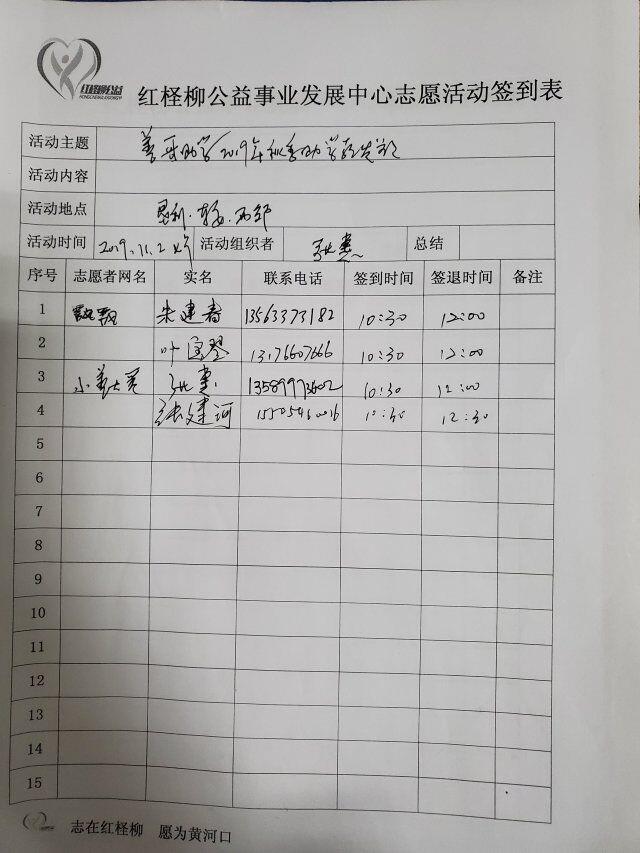 红柽柳公益
红柽柳公益事业发展中心志愿活动签到表
活动主题 善哥助学2019年秋季助学款发放
活动内容
活动地点 垦利
活动时间 2019.11.2 活动组织者 总结
序号 志愿者网名 实名 联系电话 签到时间 签退时间 备注
1 朱建春 13563373182 10:30 12:00
2 13176607666 10:30 12:00
3 10:30 12:00
4 张建河 10:30 12:30
5
6
7
8
9
10
11
12
13
14
15
志在红柽柳 愿为黄河口